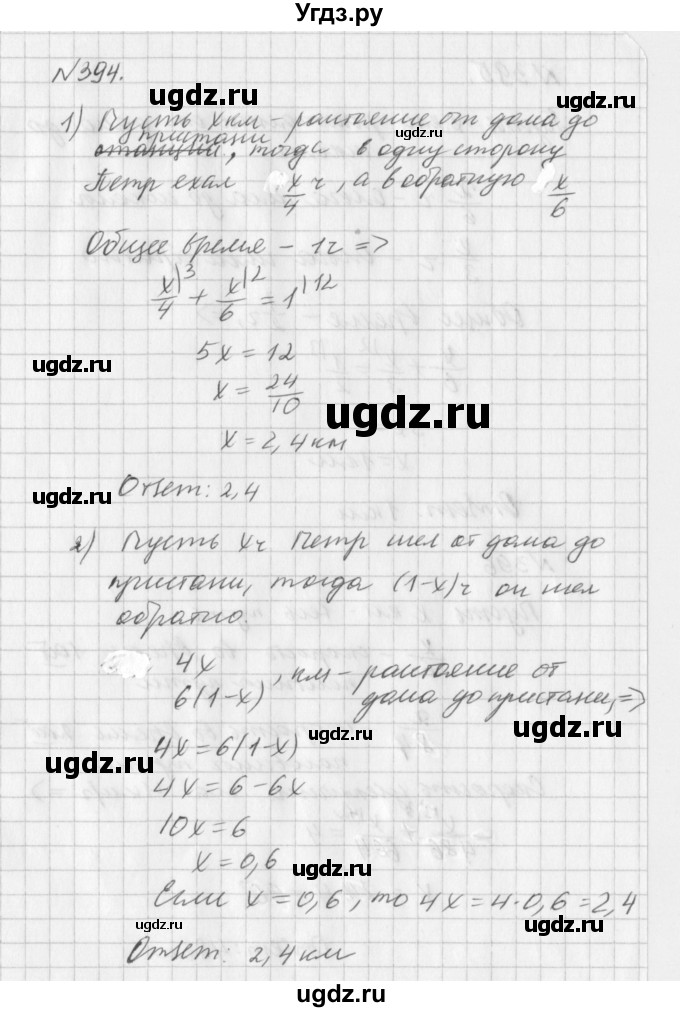 Угдз.ру
№394.
ugdz.ru
1) Пусть x км - растояние от дома до
пристани
ugdz.ru ugdz.ru
станции, тогда в одну сторону
Петр ехал x/4 ч, а в обратную x/6
ugdz.ru
Общее время - 1ч =>
x|3/4 + x|2/6 = 1|12
ugdz.ru
5x = 12
ugdz.ru
x = 24/10
ugdz.ru
x = 2,4 км
ugdz.ru
Ответ: 2,4
ugdz.ru
2) Пусть x ч Петр шел от дома до
пристани, тогда (1-x) ч он шел
обратно.
ugdz.ru
4x
6(1-x) , км - растояние от
дома до пристани, =>
ugdz.ru
4x = 6(1-x)
ugdz.ru
4x = 6 - 6x
10x = 6
x = 0,6
ugdz.ru
Если x = 0,6, то 4x = 4·0,6 = 2,4
ugdz.ru
Ответ: 2,4 км
ugdz.ru